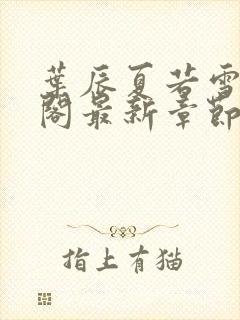 葉辰夏若雪
閣最新章節
指上有猫